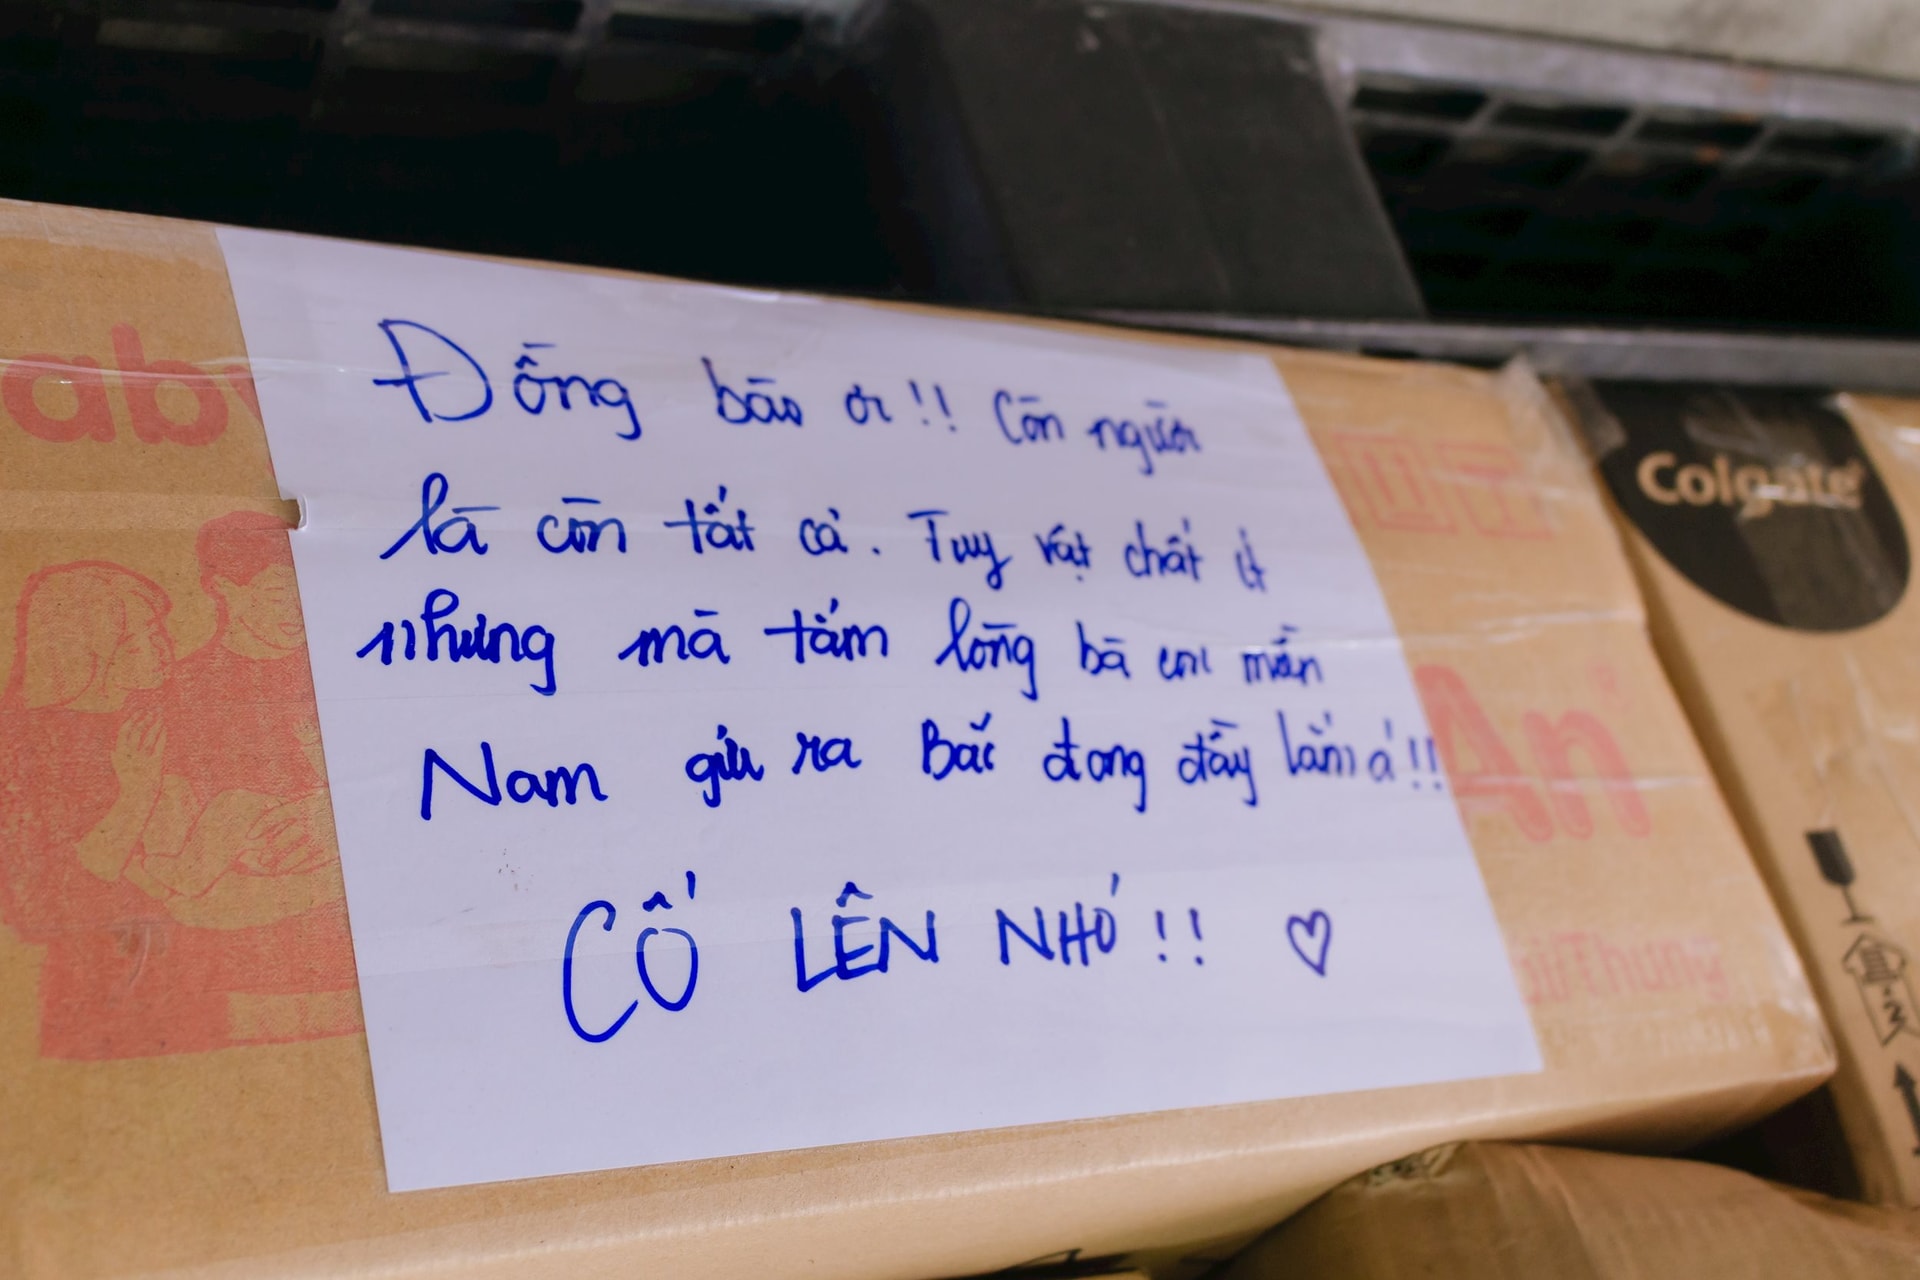 Đồng bào ơi!! Còn người
là còn tất cả. Tuy vật chất ít
nhưng mà tấm lòng bà con miền
Nam gửi ra Bắc đong đầy lắm á!!
CỐ LÊN NHÓ!! ♡
aby
Colgate
An